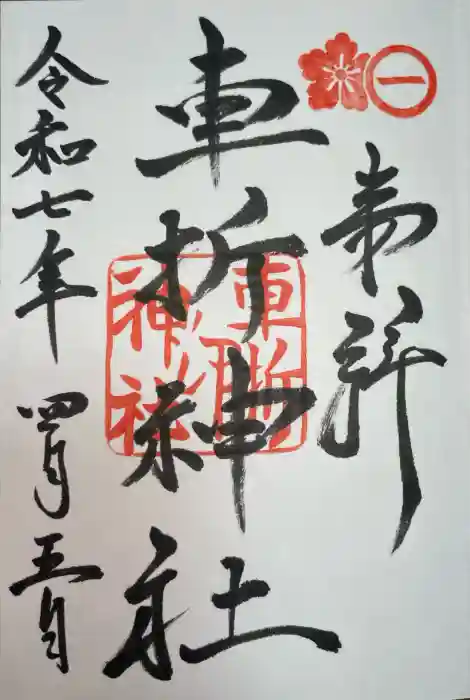 奉拝
車折神社
車折神社
令和七年四月五日